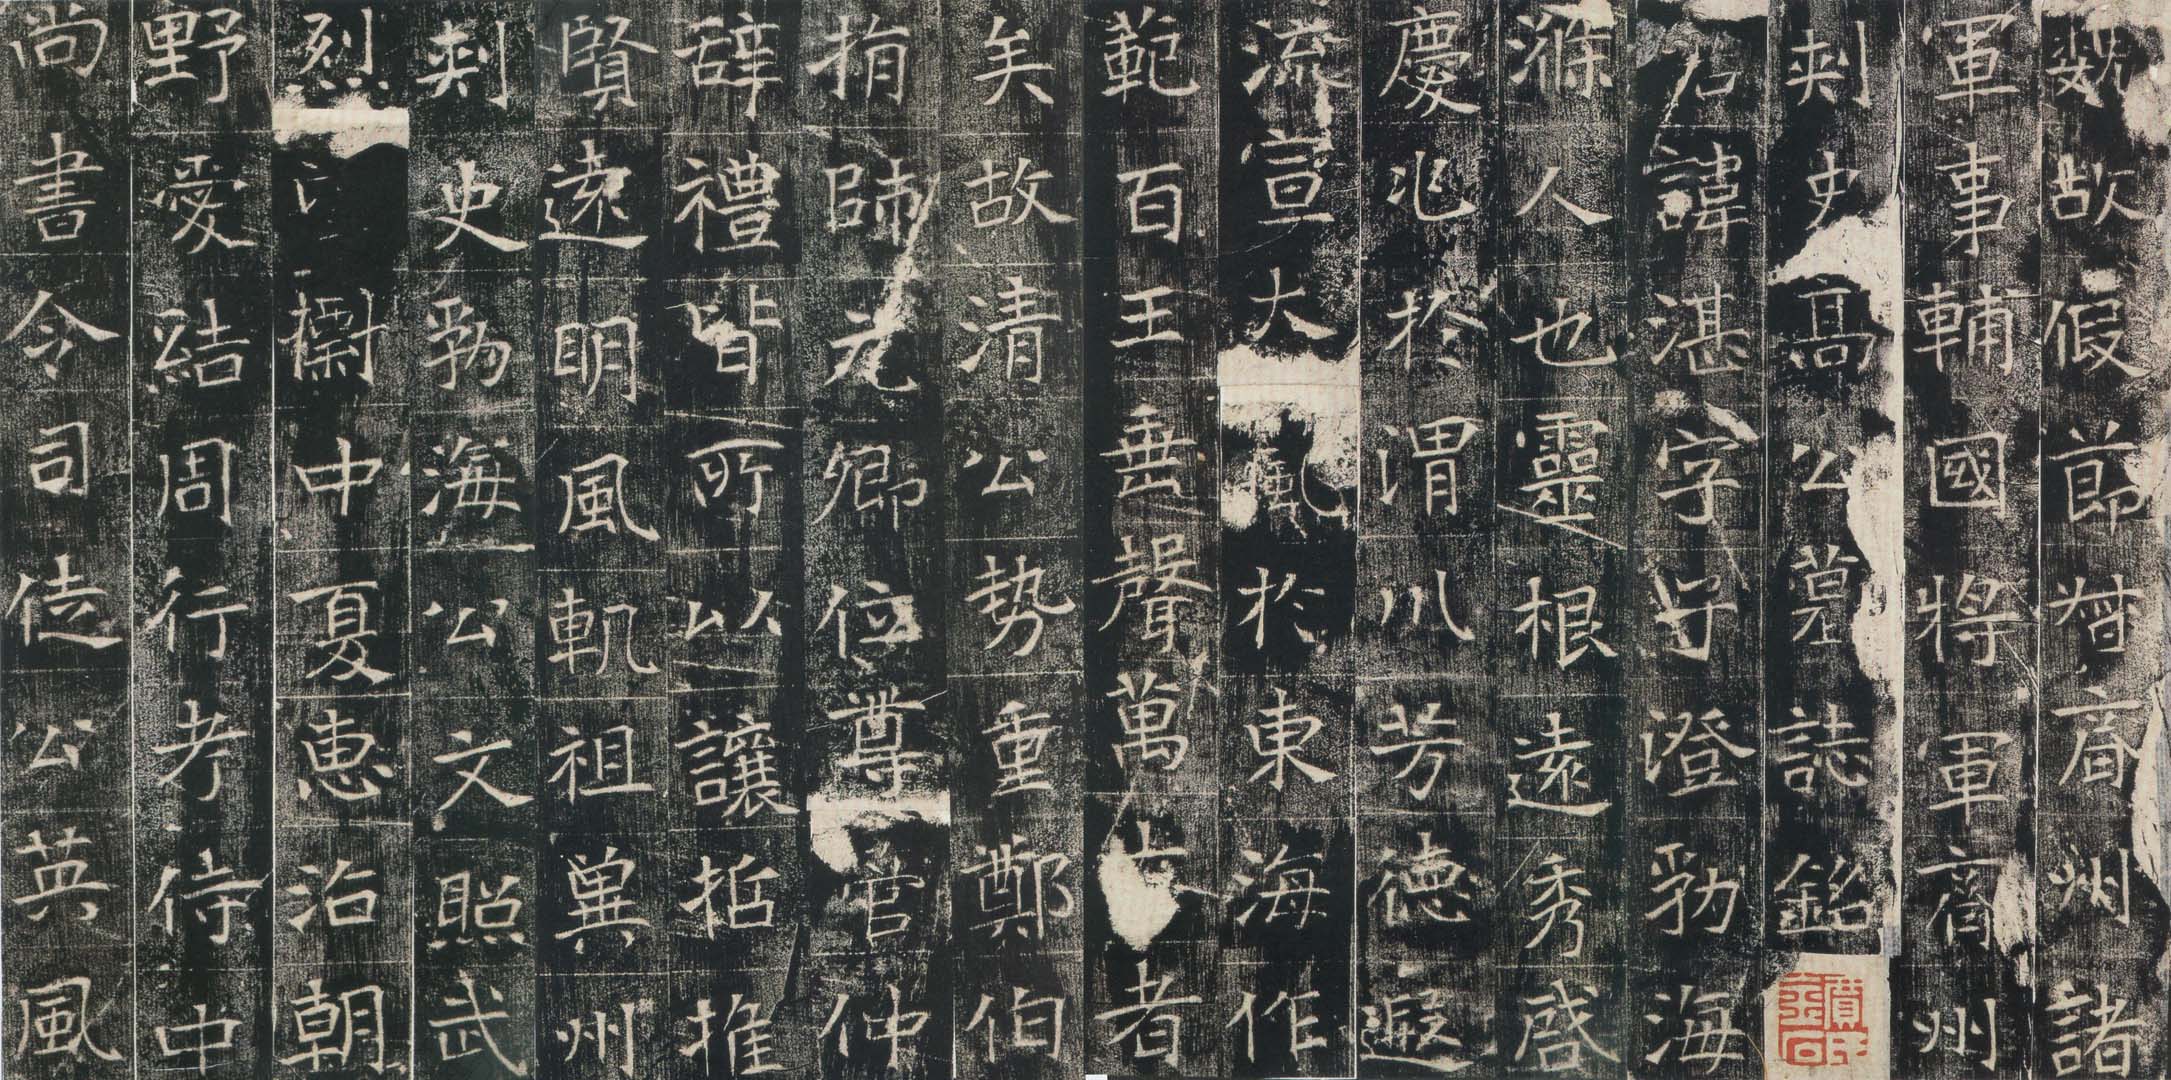 魏故假節督齊州諸
軍事輔國將軍齊州
刺史高公墓誌銘
君諱湛字子澄勃海
滌人也靈根遠秀啓
慶兆於渭川芳德遐
流宣大風於東海作
範百王垂聲萬古者
矣故清公勢重鄭伯
捐師元卿位尊管仲
辭禮皆所以讓哲推
賢遠明風軌祖冀州
刺史勃海公文照武
烈 衡中夏惠治朝
野愛結周行考侍中
尚書令司徒公英風